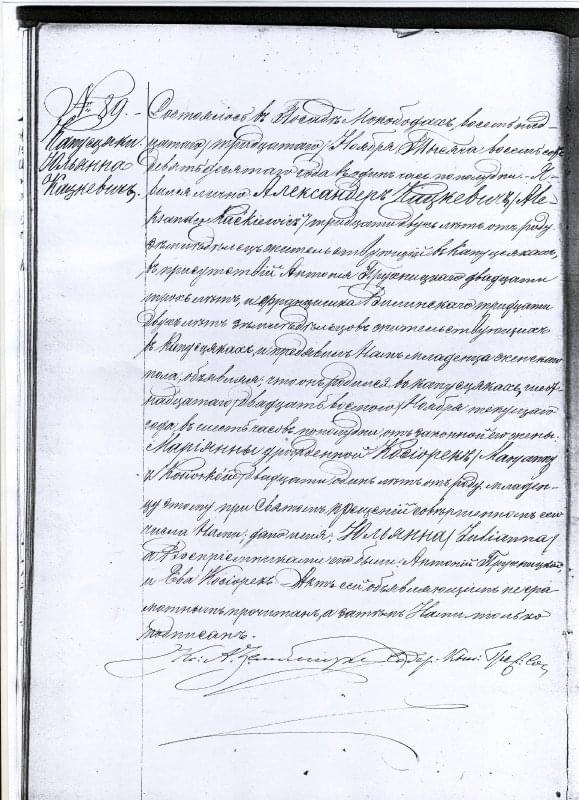 № 89.
Капусцяки.
Юльянна
Кацкевичъ.
Состоялось въ Посадѣ Мокободахъ, восемнад-
цатаго /тридцатаго/ Ноября Тысяча восемьсотъ
девятьдесятаго года въ одинъ часъ пополудни. Я-
вился лично Александеръ Кацкевичъ /Ale-
ksander Kaćkiewicz/ тридцати двухъ лѣтъ отъ роду
земледѣлецъ жительствующій въ Капусцякахъ,
въ присутствіи Антонія Пружницкаго двадцати
трехъ лѣтъ, и Францишка Вилинскаго тридцати
двухъ лѣтъ земледѣльцовъ жительствующихъ
въ Капусцякахъ, и предъявилъ Намъ младенца женскаго
пола, объявляя, что онъ родился въ Капусцякахъ, шест-
надцатаго /двадцать восьмого/ Ноября текущаго
года, въ шесть часовъ пополудни, отъ законной его жены
Маріянны урожденной Косіорекъ /Maryanny
z Kosiorków/ двадцати одинъ лѣтъ отъ роду. Младен-
цу этому при Святомъ крещеніи совершенномъ сего
числа Нами, дано имя: Юльянна /Julianna/
а Воспріемниками его были: Антоній Пружницкій
и Ева Косіорекъ. Актъ сей объявляющимъ негра-
мотнымъ прочитанъ, а затѣмъ Нами только
подписанъ.
Кс: А. Содер. Кни. Гра. Со.